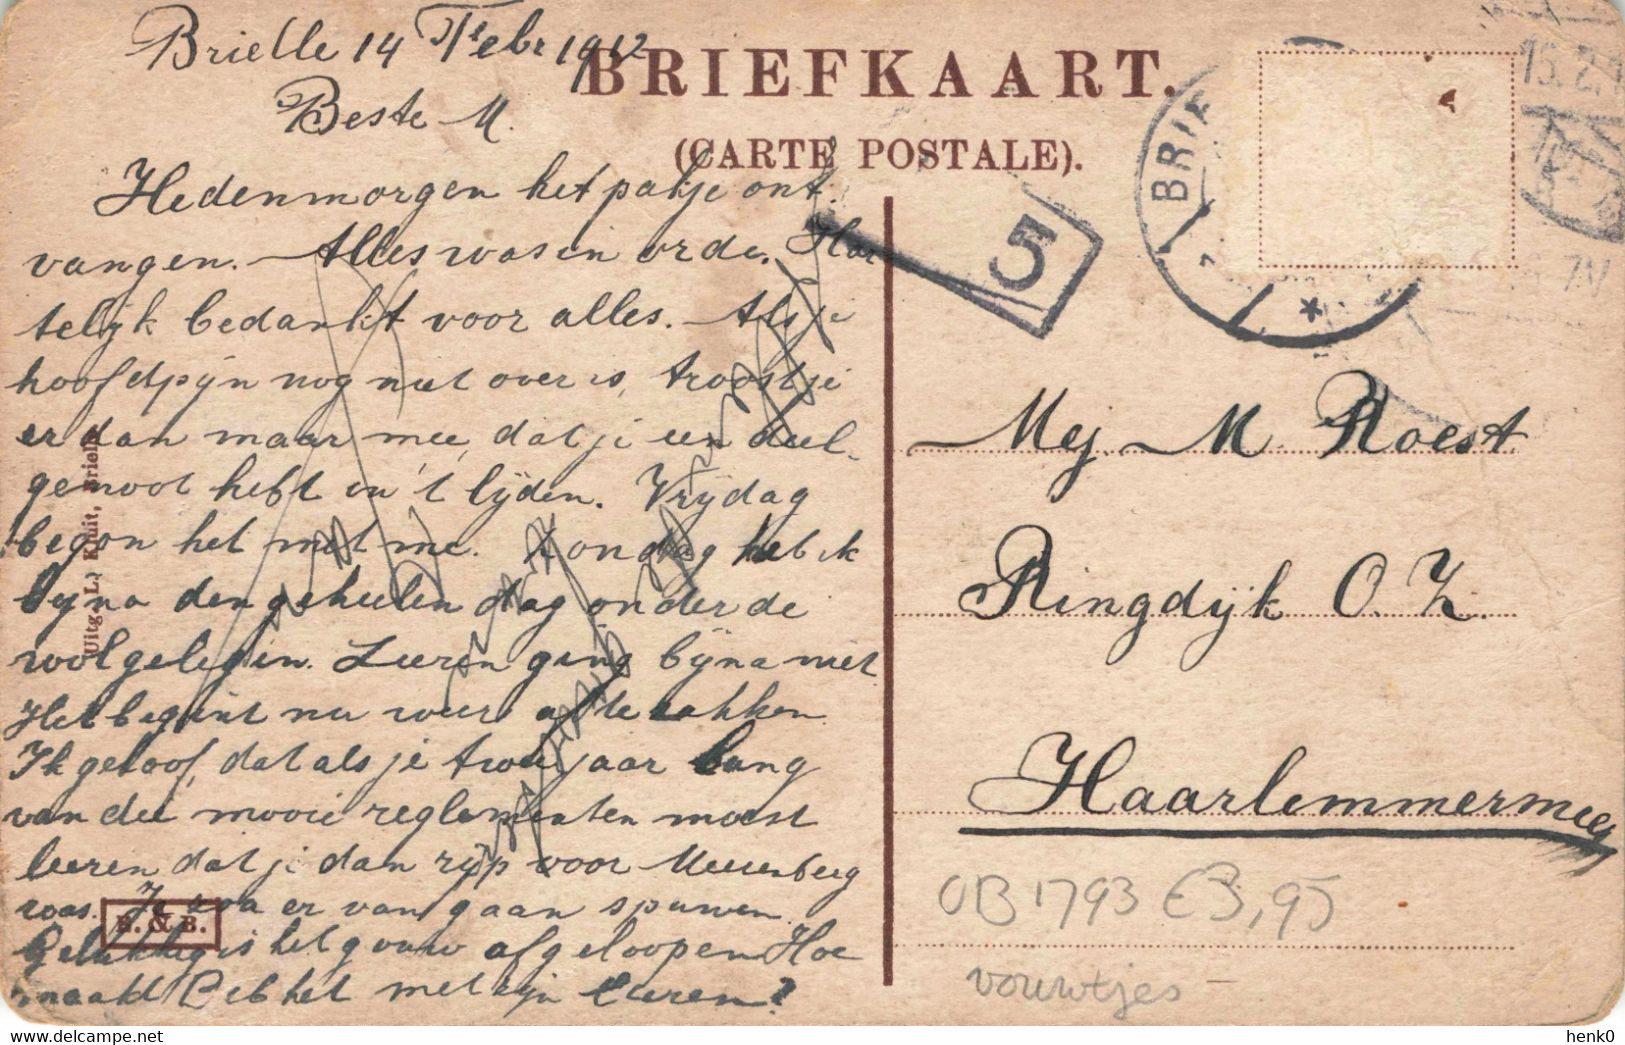 Brielle 14 Febr 1912
Beste M.
Hedenmorgen het pakje ont-
vangen. Alles was in orde. Har
telijk bedankt voor alles. Als je
hoofdpijn nog niet over is, troost je
er dan maar mee, dat je een deel-
genoot hebt in 't lijden. Vrijdag
begon het met me. Zondag heb ik
bijna den geheelen dag onder de
wol gelegen. Leeren ging bijna niet
Het begint nu weer af te zakken.
Ik geloof, dat als je twee jaar lang
van die mooie reglementen moest
leeren dat je dan rijp voor Meerenberg
was. Je zou er van gaan spuwen.
Gelukkig is het gauw afgeloopen Hoe
maakt Beb het met zijn leeren?
BRIEFKAART.
(CARTE POSTALE).
5
BRIE
15.2.1
7N
Mej. M. Roest
Ringdijk O.Z.
Haarlemmermeer
OB 1793 € 3,95
vouwtjes
Uitg. L.J. Kruit, Brielle
B. & B.
henk0